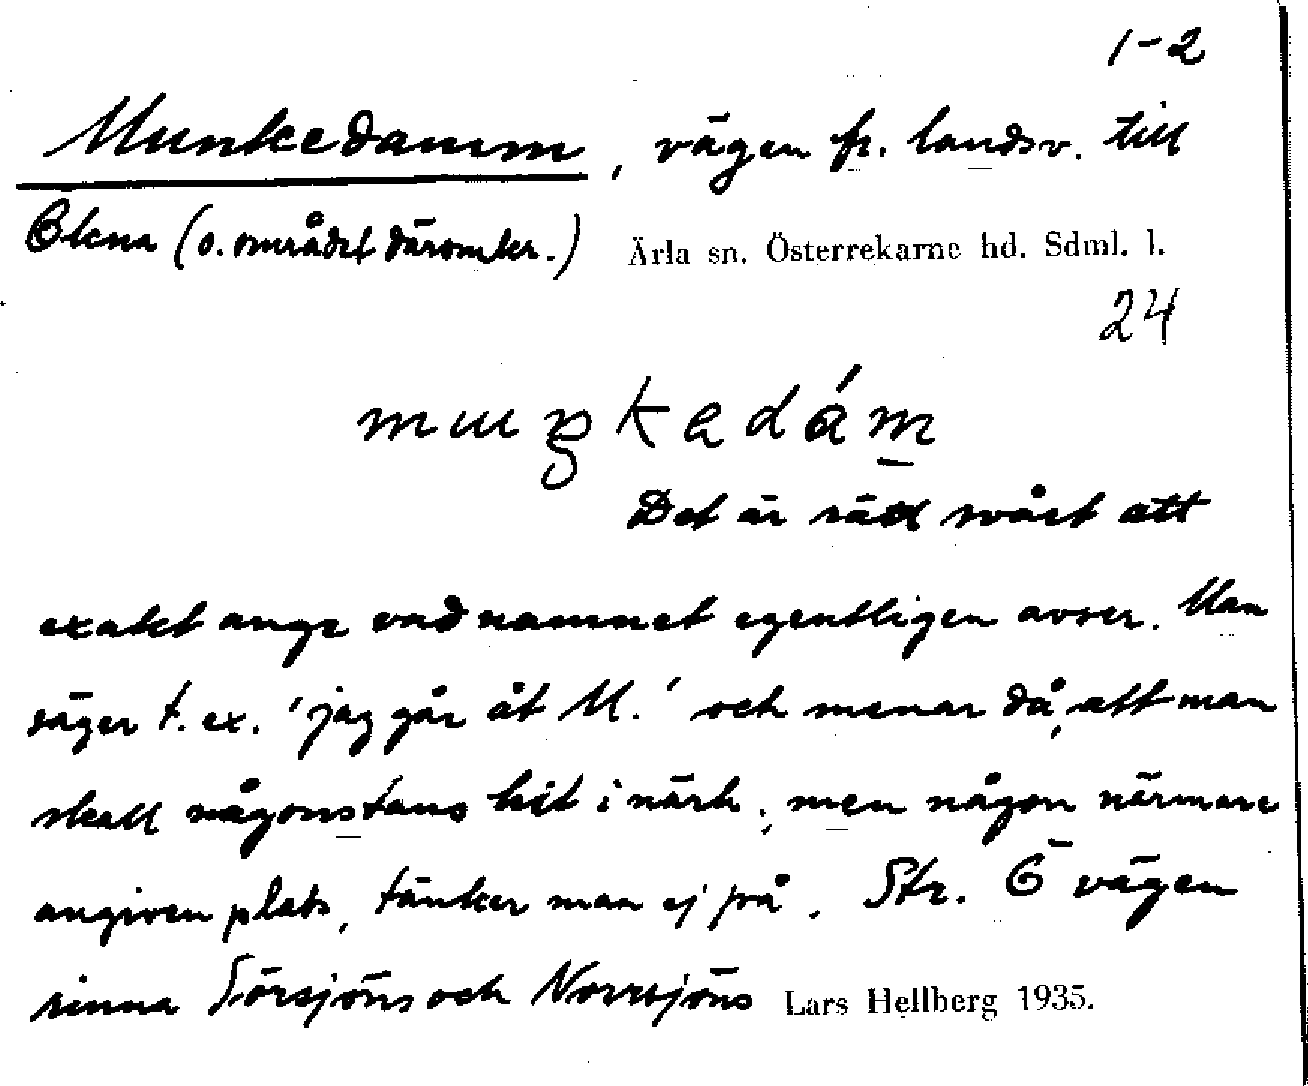 1-2
Munkedamm, vägen fr. landsv. till
Ökna (o. området däromkr.) Ärla sn. Österrekarne hd. Sdml. l.
24
muŋkadám
Det är rätt svårt att
exakt ange vad namnet egentligen avser. Man
säger t. ex. 'jag går åt M.' och menar då, att man
skall någonstans hit i närh., men någon närmare
angiven plats, tänker man ej på. Str. Ö vägen
rinna Sörsjöns och Norrsjöns Lars Hellberg 1935.